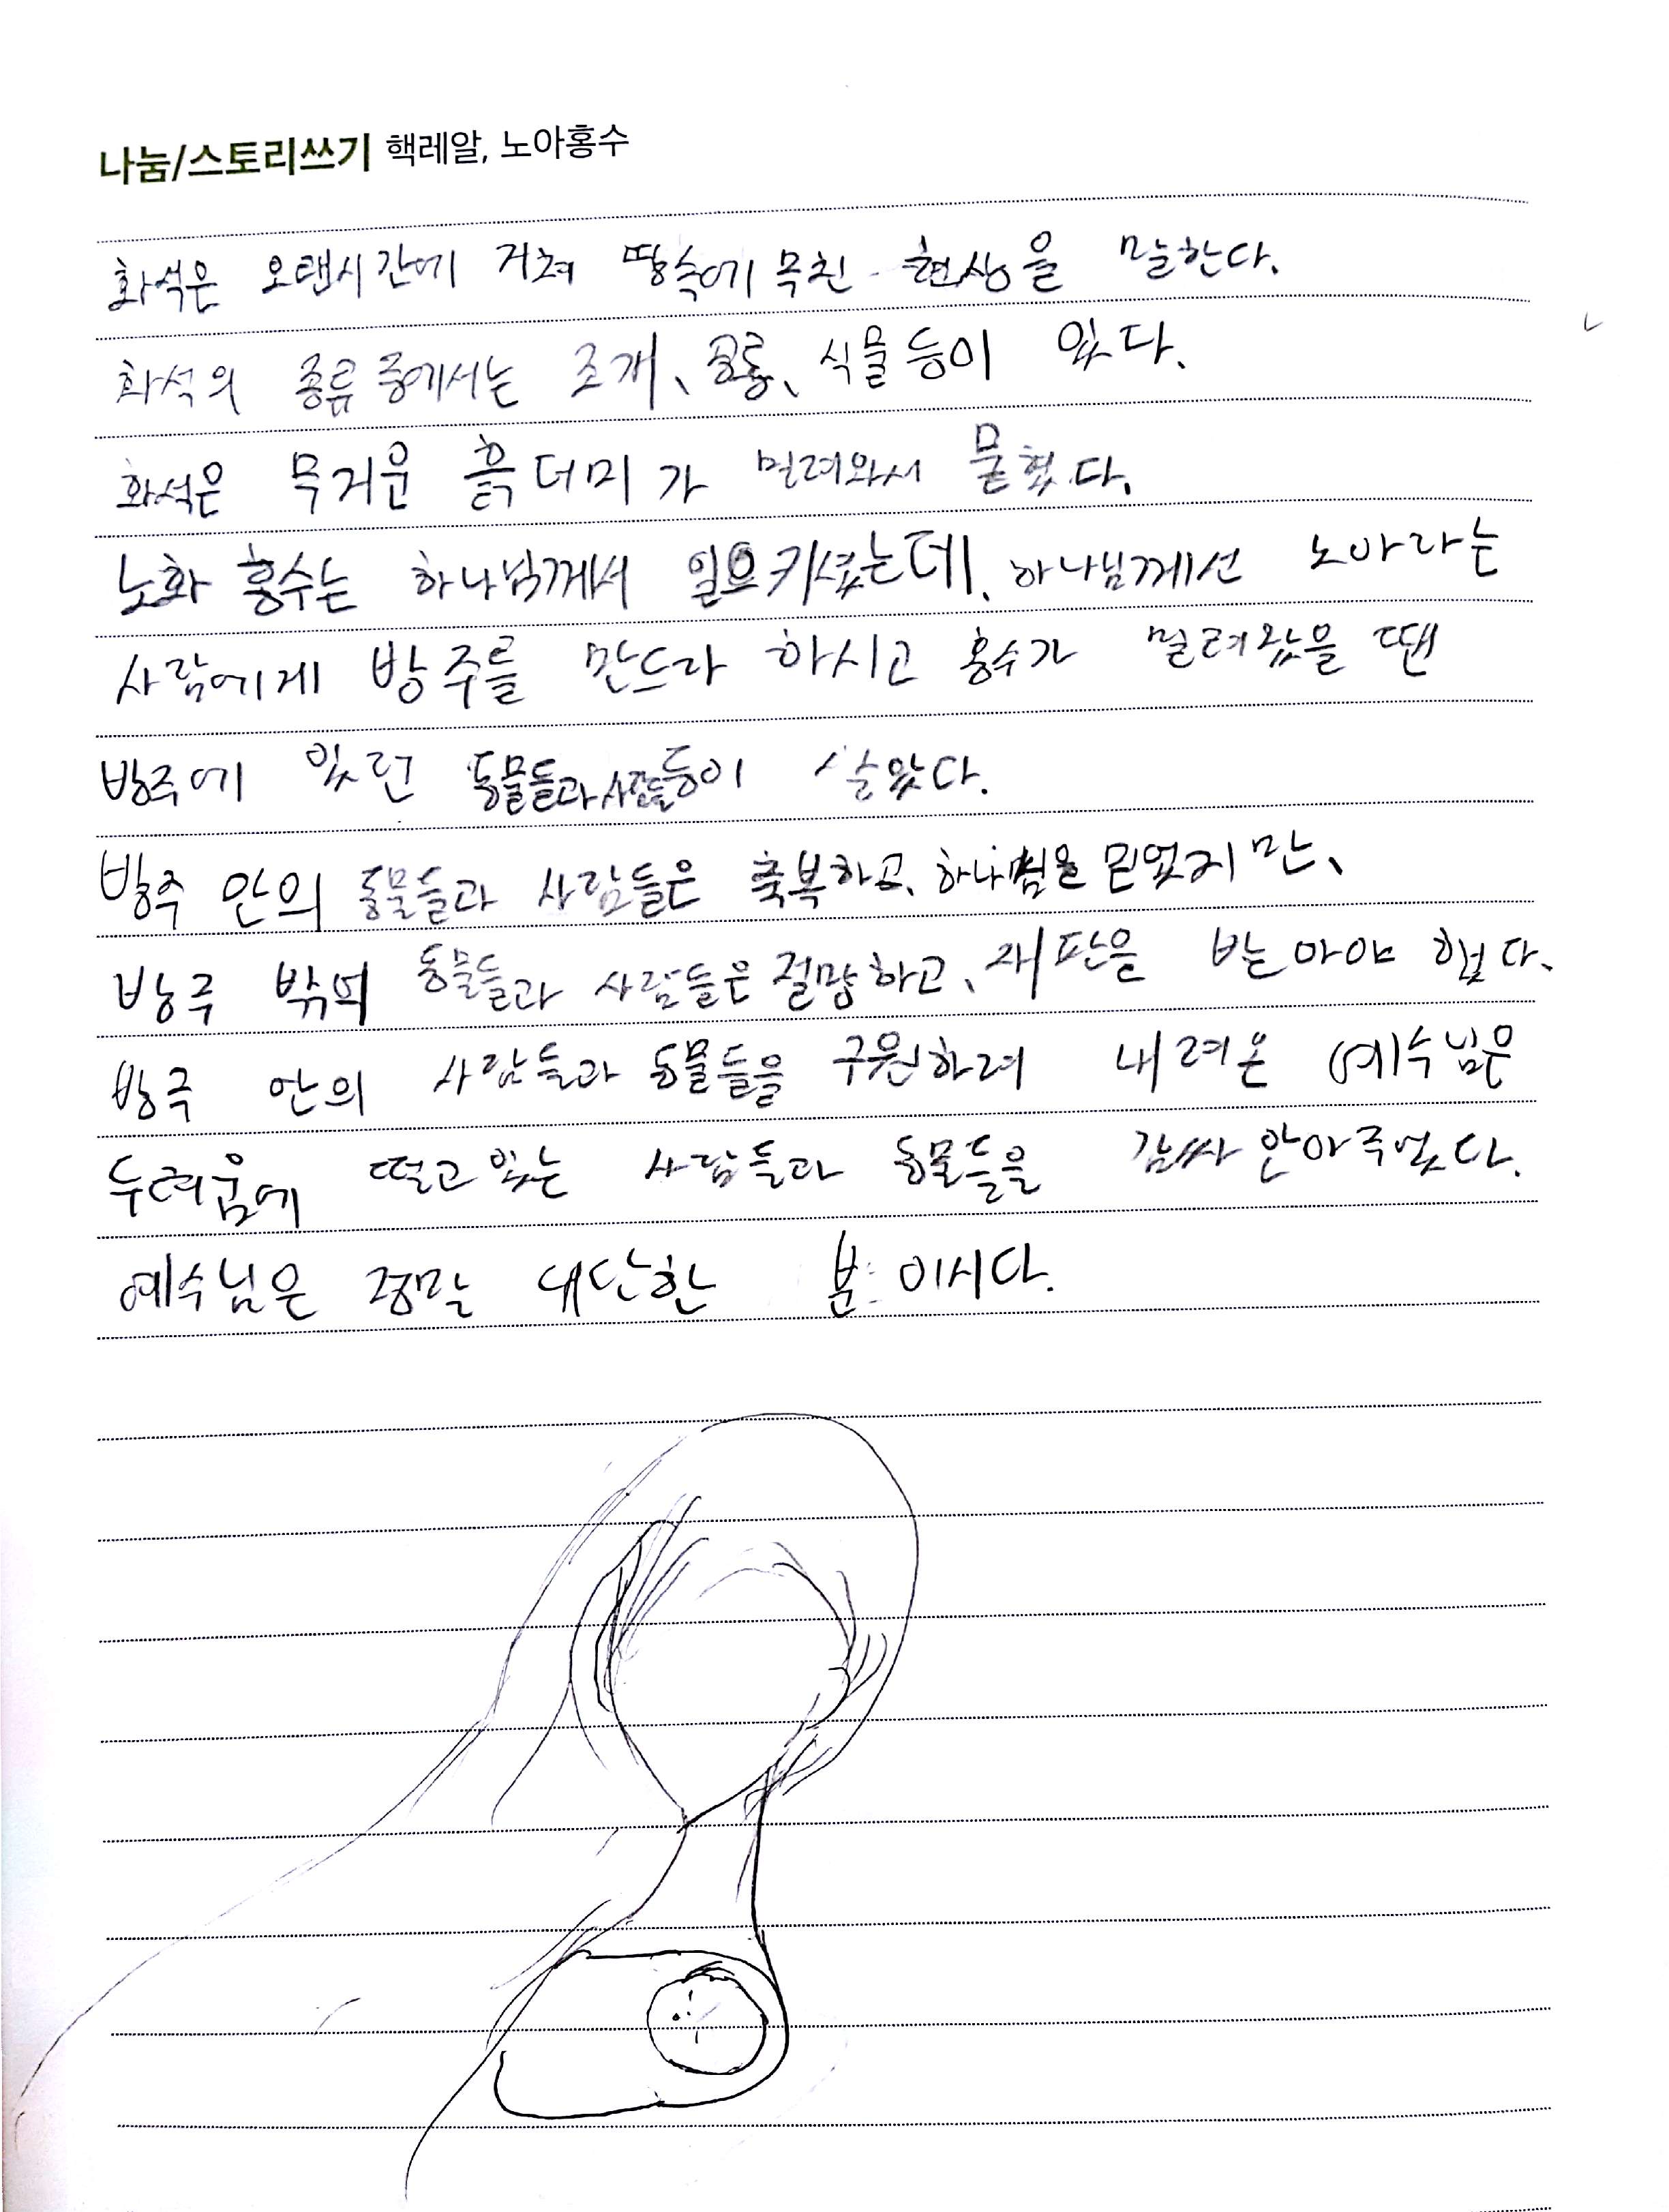 나눔/스토리쓰기 핵레알, 노아홍수
화석은 오탠시간에 거쳐 땅속에 묵친 현상을 말한다.
화석의 종류 중에서는 조개, 공룡, 식물 등이 있다.
화석은 무거운 흙더미가 밀려와서 묻혔다.
노화 홍수는 하나님께서 일으키셨는데, 하나님께선 노아라는
사람에게 방주를 만드라 하시고 홍수가 밀려왔을 땐
방주에 있던 동물들과 사람들 등이 살았다.
방주 안의 동물들과 사람들은 축복하고, 하나님을 믿었지만,
방주 밖의 동물들과 사람들은 절망하고, 재판을 받아야 했다.
방주 안의 사람들과 동물들을 구원하려 내려온 예수님은
두려움에 떨고 있는 사람들과 동물들을 감싸 안아주었다.
예수님은 정말 대단한 분이시다.